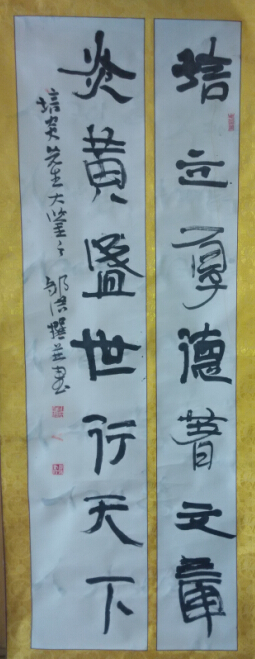 培立厚德著文章
炎黄盛世行天下
培炎先生大鉴
撰并书